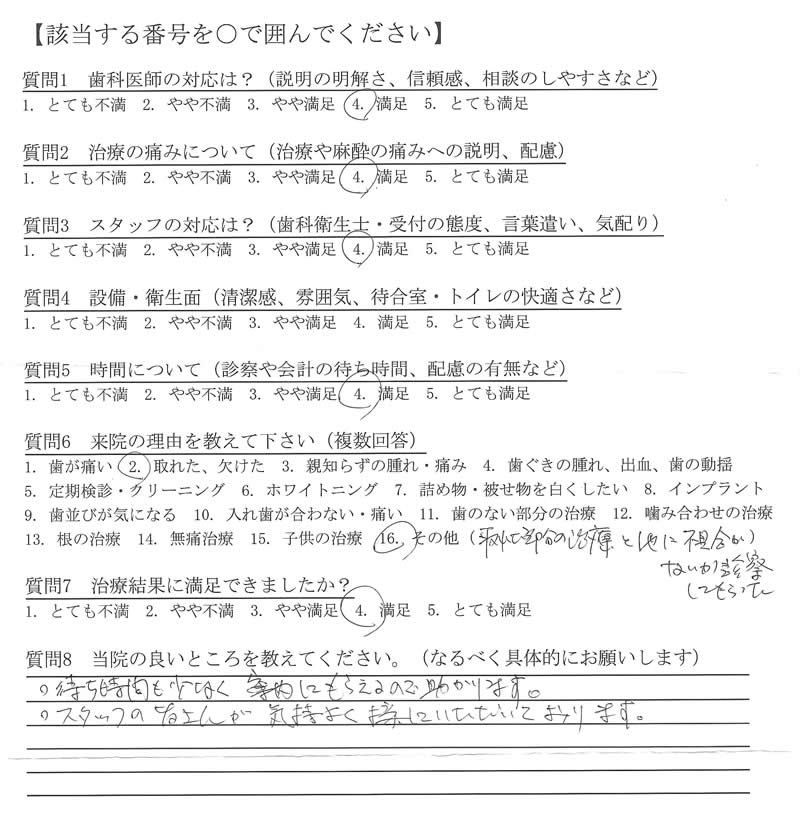 【該当する番号を○で囲んでください】
質問1 歯科医師の対応は？（説明の明解さ、信頼感、相談のしやすさなど）
1. とても不満 2. やや不満 3. やや満足 4. 満足 5. とても満足
質問2 治療の痛みについて（治療や麻酔の痛みへの説明、配慮）
1. とても不満 2. やや不満 3. やや満足 4. 満足 5. とても満足
質問3 スタッフの対応は？（歯科衛生士・受付の態度、言葉遣い、気配り）
1. とても不満 2. やや不満 3. やや満足 4. 満足 5. とても満足
質問4 設備・衛生面（清潔感、雰囲気、待合室・トイレの快適さなど）
1. とても不満 2. やや不満 3. やや満足 4. 満足 5. とても満足
質問5 時間について（診察や会計の待ち時間、配慮の有無など）
1. とても不満 2. やや不満 3. やや満足 4. 満足 5. とても満足
質問6 来院の理由を教えて下さい（複数回答）
1. 歯が痛い 2. 取れた、欠けた 3. 親知らずの腫れ・痛み 4. 歯ぐきの腫れ、出血、歯の動揺
5. 定期検診・クリーニング 6. ホワイトニング 7. 詰め物・被せ物を白くしたい 8. インプラント
9. 歯並びが気になる 10. 入れ歯が合わない・痛い 11. 歯のない部分の治療 12. 噛み合わせの治療
13. 根の治療 14. 無痛治療 15. 子供の治療 16. その他（取れた部分の治療と他に不具合が）
ないか診察
してもらった
質問7 治療結果に満足できましたか？
1. とても不満 2. やや不満 3. やや満足 4. 満足 5. とても満足
質問8 当院の良いところを教えてください。（なるべく具体的にお願いします）
○待ち時間も少なく にもらえるので助かります。
○スタッフの皆さんが気持よく接していただいております。